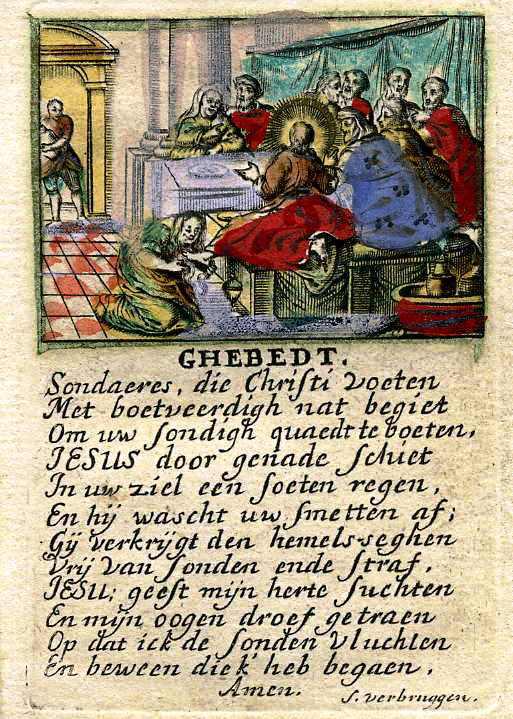 GHEBEDT.
Sondaeres, die Christi voeten
Met boetveerdigh nat begiet
Om uw sondigh quaedt te boeten,
JESUS door genade schiet
In uw ziel een soeten regen,
En hij wascht uw smetten af;
Gij verkrijgt den hemels-seghen
Vrij van sonden ende straf.
JESU; geeft mijn herte suchten
En mijn oogen droef getraen
Op dat ick de sonden vluchten
En beween die'k heb begaen.
Amen.
S. verbruggen.